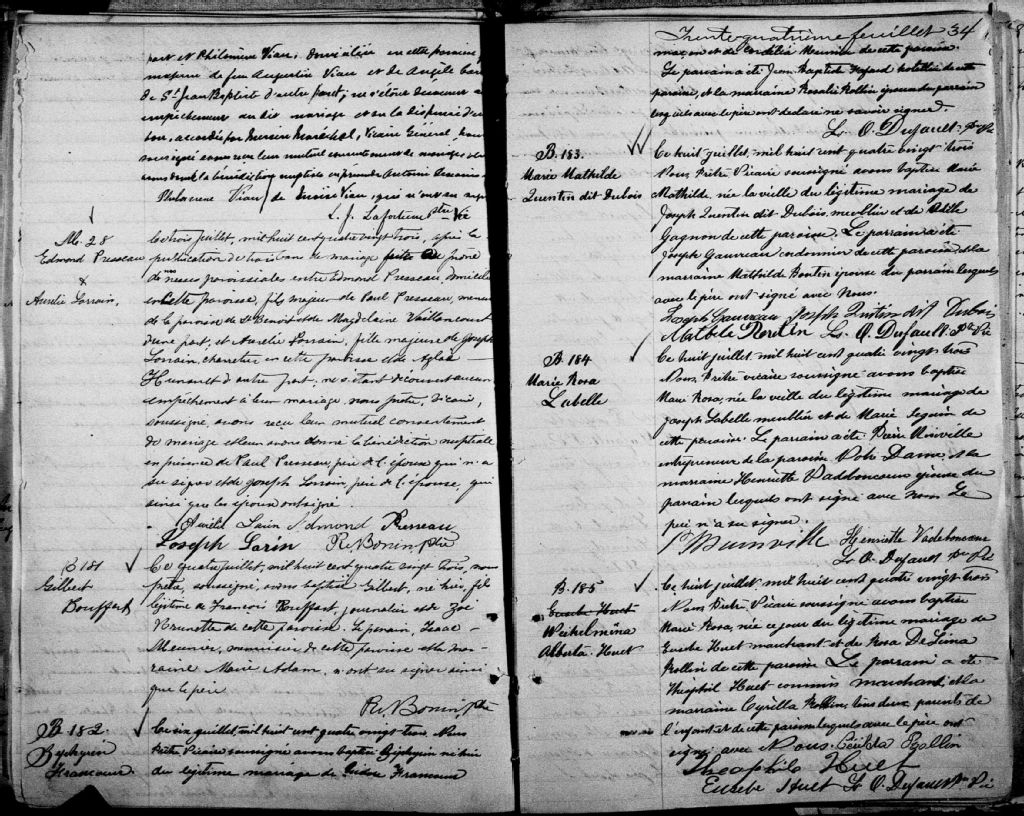 part et Philomène Viau, domiciliée en cette paroisse
majeure de feu Augustin Viau et de Angèle
de St Jean Baptiste d'autre part; ne s'étant découvert
empêchement au dit mariage et vu la dispense
accordée par Maréchal, Vicaire Général, nous
avons reçu leur mutuel consentement de mariage
avons donné la bénédiction nuptiale en présence
Viau, de Viau, qui
L. J. Lafortune Ptre Vic
M. 28
Edmond Presseau
&
Aurelie Lorrain,
Le trois juillet, mil huit cent quatre vingt trois, après la
publication de trois bans de mariage faite au prône
de nos messes paroissiales entre Edmond Presseau, domicilié
en cette paroisse, fils majeur de Paul Presseau, menuisier
de la paroisse de St Benoit et de Magdeleine Vaillancourt
d'une part, et Aurelie Lorrain, fille majeure de Joseph
Lorrain, charretier en cette paroisse et de Aglaé
Hunault d'autre part; ne s'étant découvert aucun
empêchement à leur mariage, nous prêtre, vicaire,
soussigné, avons reçu leur mutuel consentement
de mariage et leur avons donné la bénédiction nuptiale
en présence de Paul Presseau, père de l'époux qui n'a
su signer et de Joseph Lorrain, père de l'épouse, qui
ainsi que les époux ont signé.
Aurélie Lorin Edmond Presseau
Joseph Lorin R. Bonin Ptre
B 181
Gilbert
Bouffart
Ce quatre juillet, mil huit cent quatre vingt trois, nous
prêtre, soussigné, avons baptisé Gilbert, né hier, fils
légitime de François Bouffart, journalier et de Zoé
Brunette de cette paroisse. Le parrain, Isaac
Meunier, menuisier de cette paroisse et la mar-
raine Marie Adam, n'ont su signer ainsi
que le père
R. Bonin, Ptre
B 182.
Zephyrin
Francoeur
Le six juillet, mil huit cent quatre vingt trois Nous
Prêtre Vicaire soussigné avons baptisé Zéphyrin né hier
du légitime mariage de Isidore Francoeur
Trente quatrième feuillet 34
maçon et de Cordélia Meunier de cette paroisse.
Le parrain a été Jean Baptiste hotellier de cette
paroisse, et la marraine Rosalie Rollin épouse du parrain
lesquels avec le père ont déclaré ne savoir signer.
L. O. Dufault. Ptre Vic
B. 183.
Marie Mathilde
Quentin dit Dubois
Ce huit juillet, mil huit cent quatre vingt trois
Nous Prêtre Vicaire soussigné avons baptisé Marie
Mathilde, née la veille du légitime mariage de
Joseph Quentin dit Dubois, meublier et de Odile
Gagnon de cette paroisse. Le parrain a été
Joseph Gauvreau cordonnier de cette paroisse et la
marraine Mathilde Boutin épouse du parrain lesquels
avec le père ont signé avec Nous.
Joseph Gauvreau Joseph Quintin dit Dubois
Matilde Boutin L. O. Dufault. Ptre Vic
B. 184
Marie Rosa
Labelle
Ce huit juillet mil huit cent quatre vingt trois
Nous, Prêtre vicaire soussigné avons baptisé
Marie Rosa, née la veille du légitime mariage de
Joseph Labelle meublier et de Marie Seguin de
cette paroisse. Le parrain a été Pierre Mainville
entrepreneur de la paroisse Notre Dame, et la
marraine Henriette Vadboncoeur épouse du
parrain lesquels ont signé avec Nous Le
père n'a su signer.
P Mainville Henriette Vadeboncoeur
L. O. Dufault Ptre Vic
B. 185
Eusebe Huet
Wilhelmina
Alberta Huet
Ce huit juillet mil huit cent quatre vingt trois
Nous Prêtre Vicaire soussigné avons baptisé
Marie Rosa, née ce jour du légitime mariage de
Eusebe Huet marchand et de Rosa De Lima
Rollin de cette paroisse Le parrain a été
Théophil Huet commis marchand, et la
marraine Cyrilla Rollin, tous deux parents de
l'enfant et de cette paroisse lesquels avec le père ont
signé avec Nous. Rollin
Theophile Huet
Eusebe Huet L. O. Dufault Ptre Vic